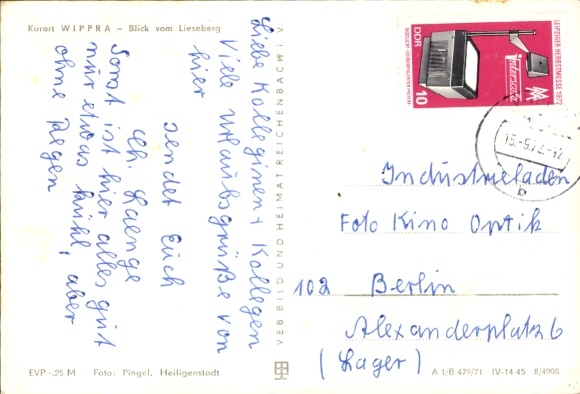 Kurort WIPPRA – Blick vom Lieseberg
Liebe Kolleginen + Kollegen
Viele Urlaubsgrüße von
hier
sendet Euch
Ch. Laenge
Sonst ist hier alles gut
nur etwas kühl, aber
ohne Regen
VEB BILD UND HEIMAT REICHENBACH I. V.
LEIPZIGER HERBSTMESSE 1972
DDR
10
MM
21.-5.73-15
b
Industrieladen
Foto Kino Optik
102 Berlin
Alexanderplatz 6
(Lager)
EVP -,25 M Foto: Pingel, Heiligenstadt
A 1/B 479/71 IV-14-45 8/4908